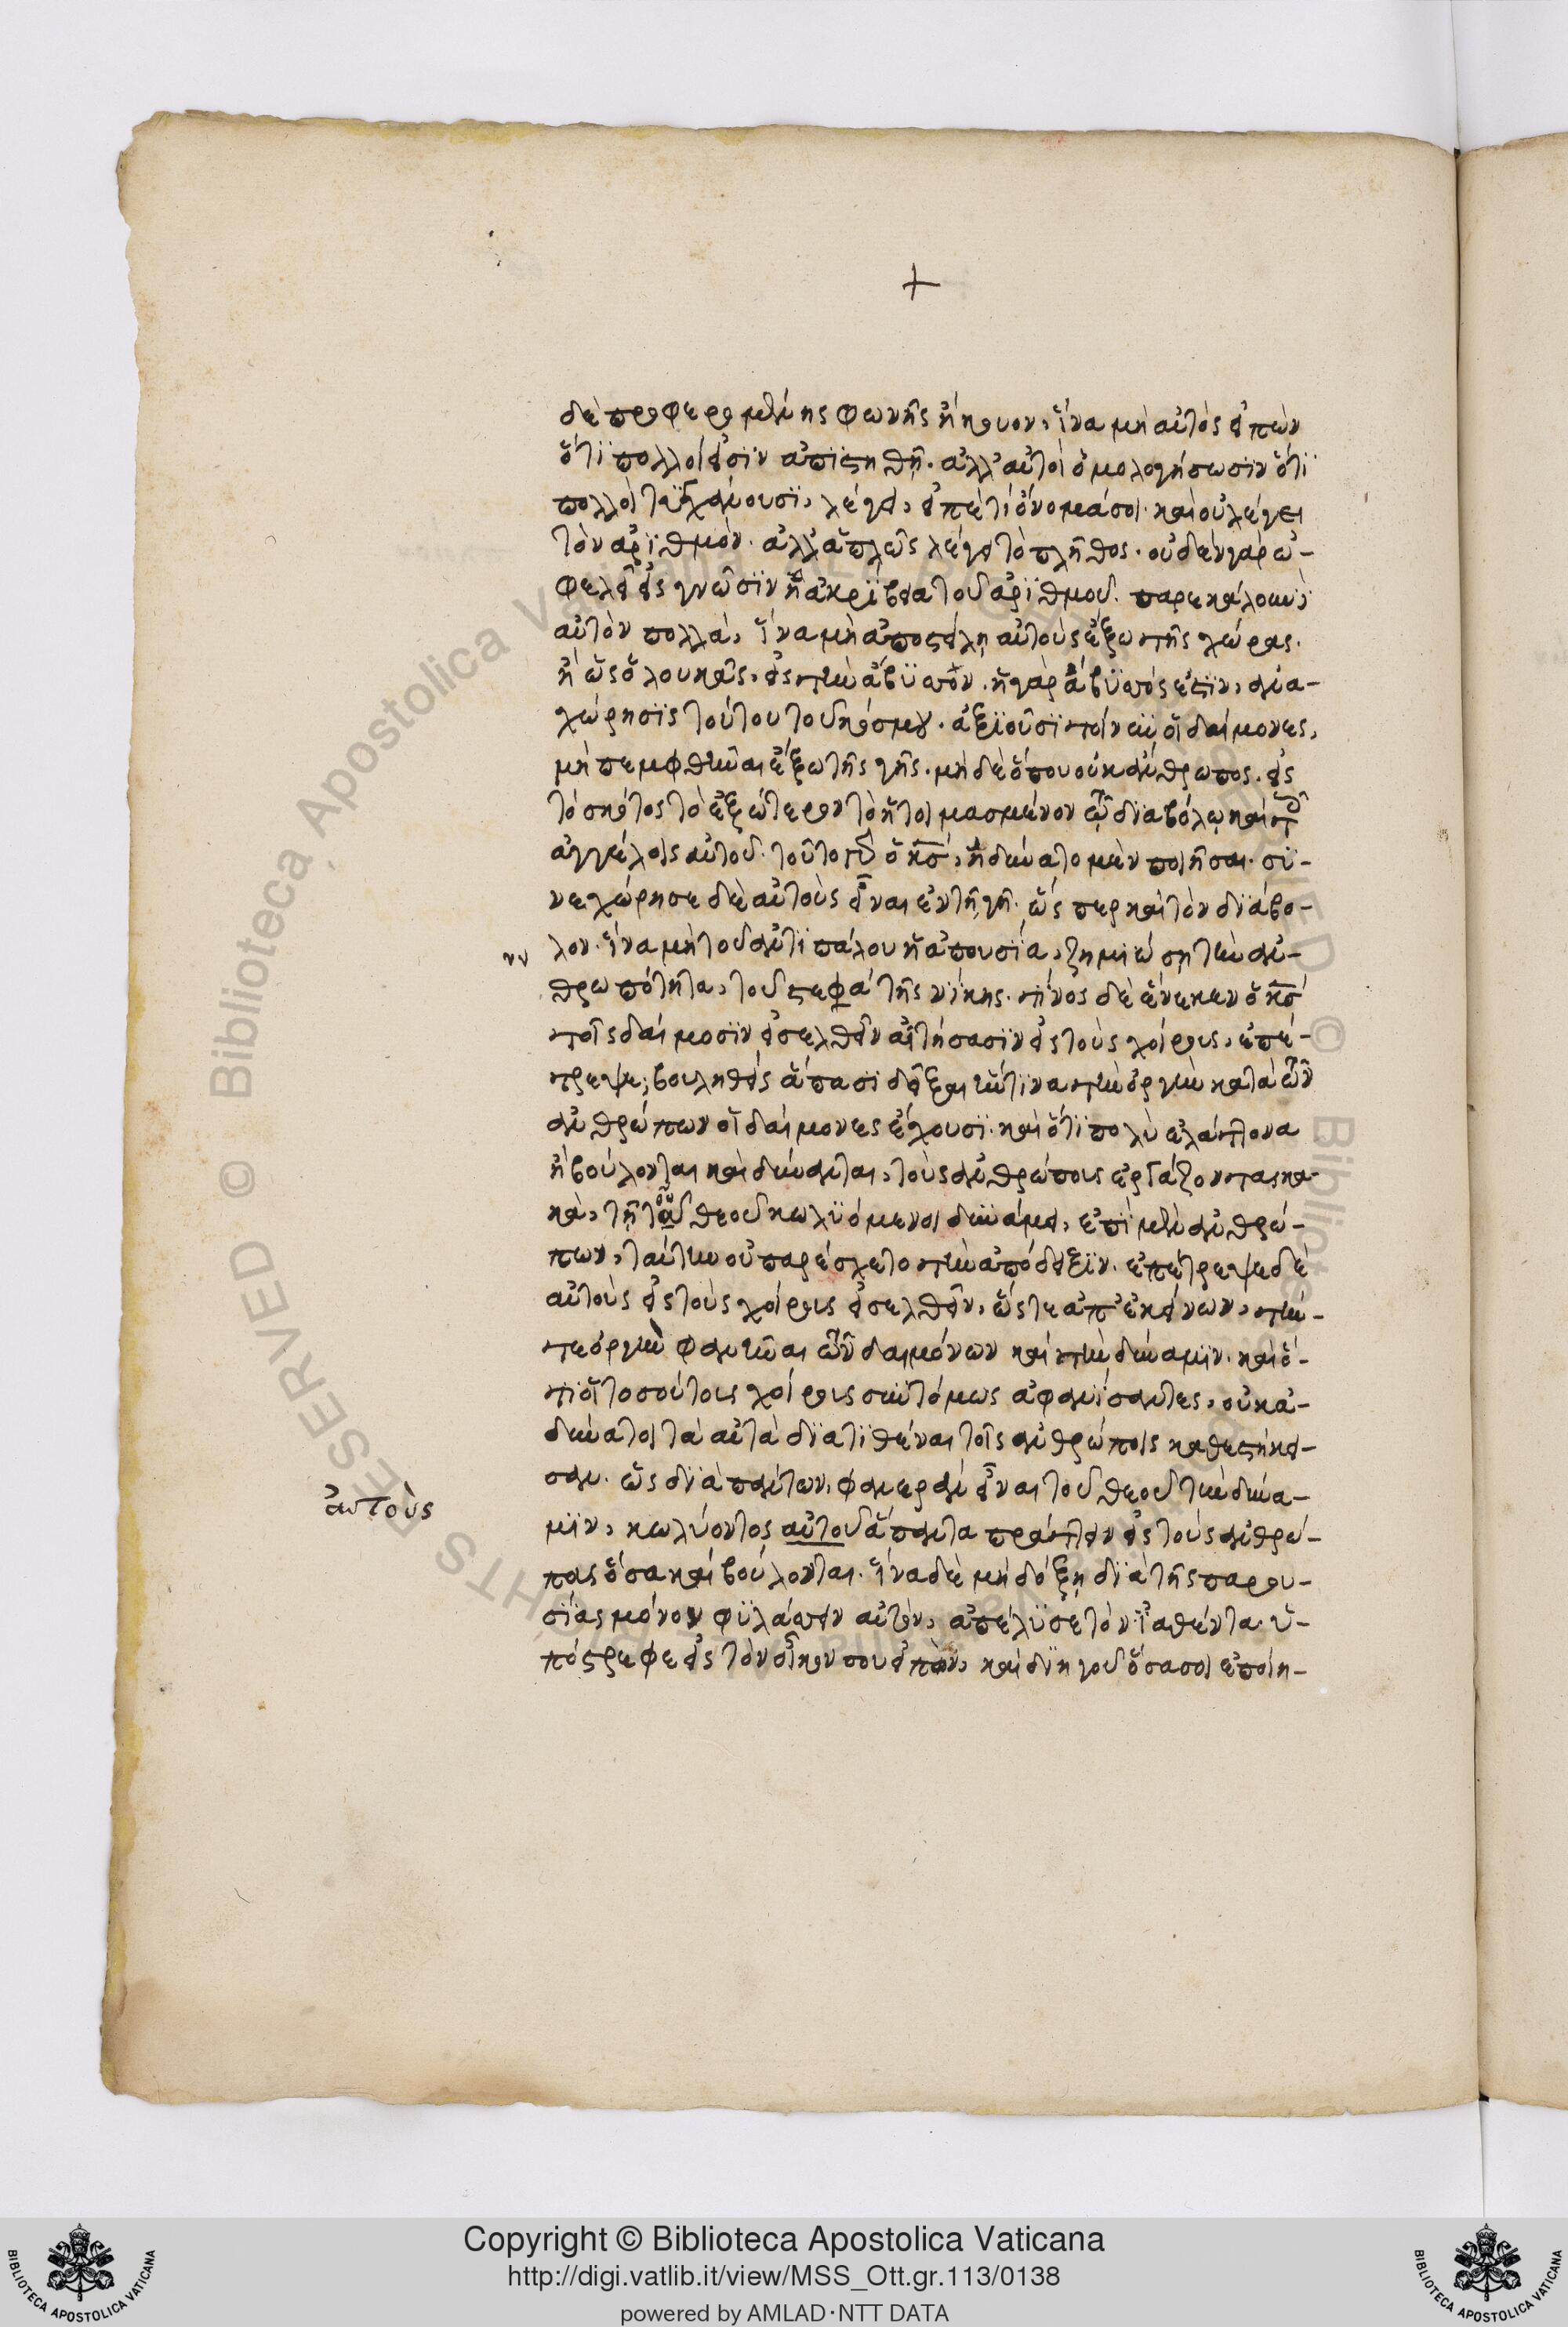 +
δὲ προφερομένης φωνῆς ἤκουον, ἵνα μὴ αὐτὸς εἰπὼν
ὅτϊ πολλοί εἰσϊν ἀπϊστηθῆ· ἀλλ' αὐτοὶ ὁμολογήσωσϊν ὅτϊ
πολλοὶ τυγχάνουσϊ, λέγει, εἰπὲ τί ὄνομά σοι· καὶ οὐ λέγει
τὸν ἀρϊθμόν· ἀλλ' ἁπλῶς λέγει τὸ πλῆθος· οὐδὲν γὰρ ὠ-
φελεῖ εἰς γνῶσϊν ἡ ἀκρΐβεια τοῦ ἀρϊθμοῦ· παρεκάλουν
αὐτὸν πολλὰ, ἵνα μὴ ἀποστείλη αὐτοὺς ἔξω τῆς χώρας·
ἢ ὡς ὁ λουκᾶς, εἰς τὴν ἄβϋσσον· ἡ γὰρ ἄβϋσσός ἐστϊν, ἀνα-
χώρησϊς τούτου τοῦ κόσμου· ἀξϊοῦσϊ τοίνυν οἱ δαίμονες,
μὴ πεμφθῆναι ἔξω τῆς γῆς· μὴ δὲ ὅπου οὐκ ἄνθρωπος· εἰς
τὸ σκότος τὸ ἐξώτερον τὸ ἡτοιμασμένον τῷ διαβόλῳ καὶ τοῖς
ἀγγέλοις αὐτοῦ· τοῦτο γὰρ ὁ κς, ἠδύνατο μὲν ποιῆσαι· σϋ-
νεχώρησε δὲ αὐτοὺς εἶναι ἐν τῇ γῇ· ὥσπερ καὶ τὸν δϊάβο-
λον· ἵνα μὴ τοῦ ἀντϊπάλου ἡ ἀπουσία, ζημιώση τὴν ἀν-
θρωπότητα, τοῦ στεφά τῆς νίκης· τίνος δὲ ἕνεκεν ὁ κς
τοῖς δαίμοσϊν εἰσελθεῖν αἰτήσασϊν εἰς τοὺς χοίρους, ἐπέ-
τρεψε; βουληθεὶς ἅπασϊ δεῖξαι τίνα τὴν ὀργὴν κατὰ τῶν
ἀνθρώπων οἱ δαίμονες ἔχουσϊ· καὶ ὅτϊ πολὺ ἐλάττονα
ἢ βούλονται καὶ δύνανται, τοὺς ἀνθρώπους ἐργάζονται κα-
κὰ, τῇ τοῦ θεοῦ κωλϋόμενοι δυνάμει, ἐπϊ μὲν ἀνθρώ-
πων, ταύτην οὐ παρέσχετο τὴν ἀπόδειξϊν· ἐπέτρεψε δὲ
αὐτοὺς εἰς τοὺς χοίρους εἰσελθεῖν, ὥστε ἀπ' ἐκείνων, τήν
τε ὀργὴν φανῆναι τῶν δαιμόνων καὶ τὴν δύναμϊν· καὶ ὅ-
τϊ οἱ τοσούτους χοίρους συντόμως ἀφανΐσαντες, οὐκ ἀ-
δύνατοι τὰ αὐτὰ δϊατϊθέναι τοῖς ἀνθρώποις καθεστήκει-
σαν· ὡς δϊὰ πάντων, φανερὰν εἶναι τοῦ θεοῦ τὴν δύνα-
ἀυτοὺς
μϊν, κωλύοντος αὐτοῦ ἅπαντα πράττειν εἰς τοὺς ἀνθρώ-
πους ὅσα καὶ βούλονται· ἵνα δὲ μὴ δόξῃ δϊὰ τῆς παρου-
σϊας μόνον φϋλάσσειν αὐτὸν, ἀπέλϋσε τὸν ϊαθέντα· ὑ-
πόστρεφε εἰς τὸν οἶκον σου εἰπὼν, καὶ διηγοῦ ὅσα σοι ἐποίη-
Copyright © Biblioteca Apostolica Vaticana
http://digi.vatlib.it/view/MSS_Ott.gr.113/0138
powered by AMLAD·NTT DATA
BIBLIOTECA APOSTOLICA VATICANA
BIBLIOTECA APOSTOLICA VATICANA